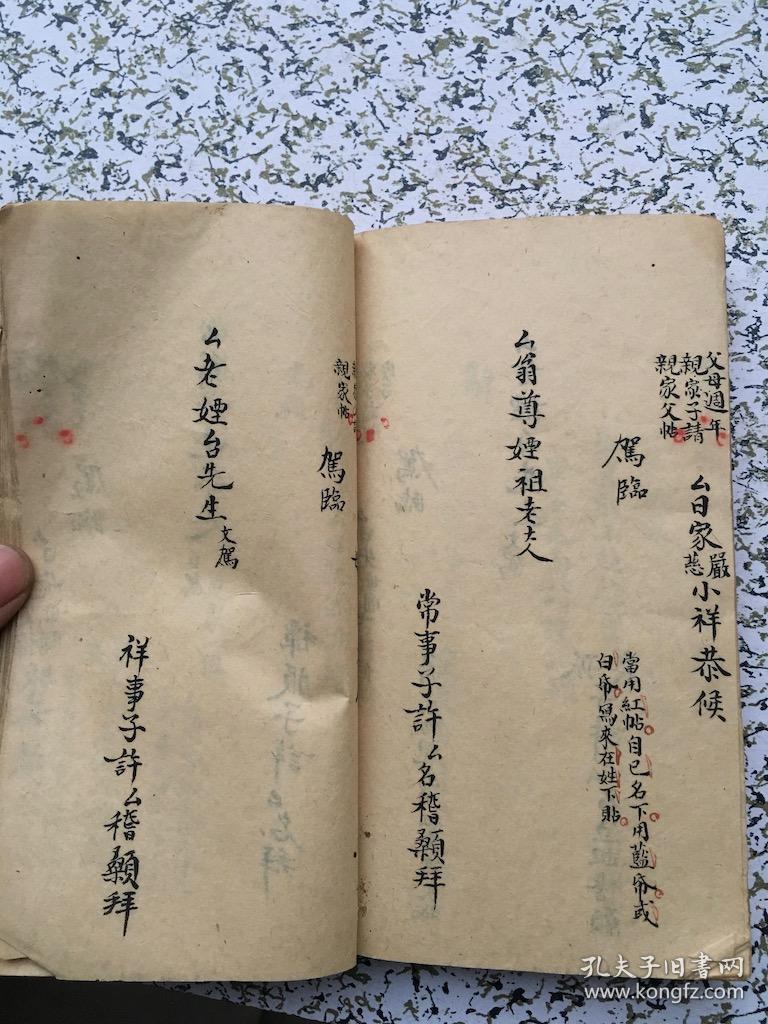 父母週年
親家子請
親家父帖
厶日家嚴慈小祥恭候
當用紅帖自己名下用藍帋或
白帋寫來在姓下貼
駕臨
厶翁尊姻祖老大人
常事子許厶名稽顙拜
親家帖
駕臨
厶老姻台先生文駕
祥事子許厶稽顙拜
孔夫子旧书网
www.kongfz.com